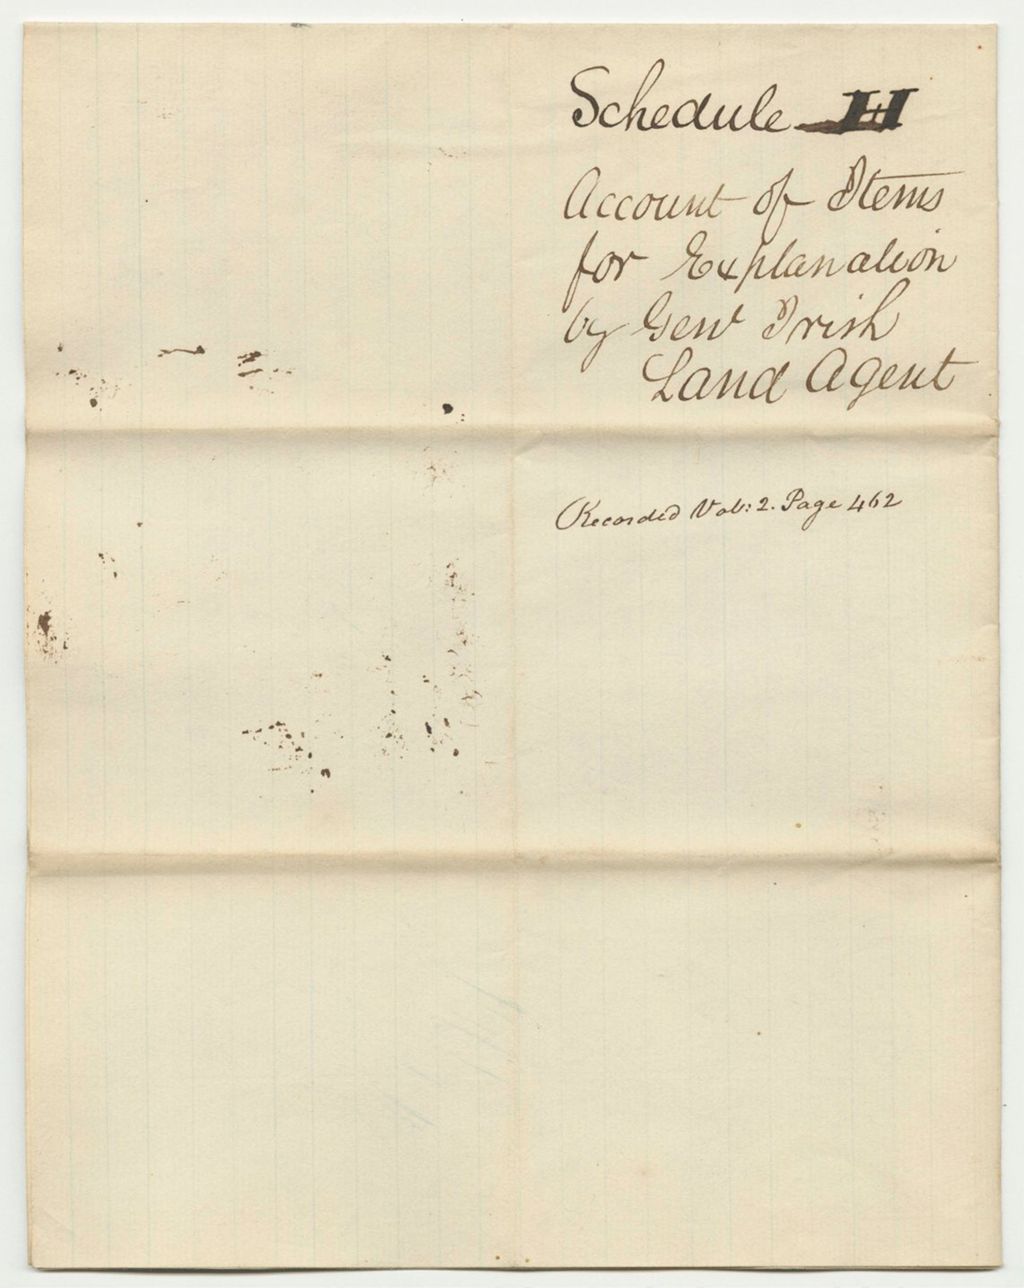 Schedule H
Account of Items
for Explanation
by Genl Irish
Land Agent
Recorded Vol: 2. Page 462